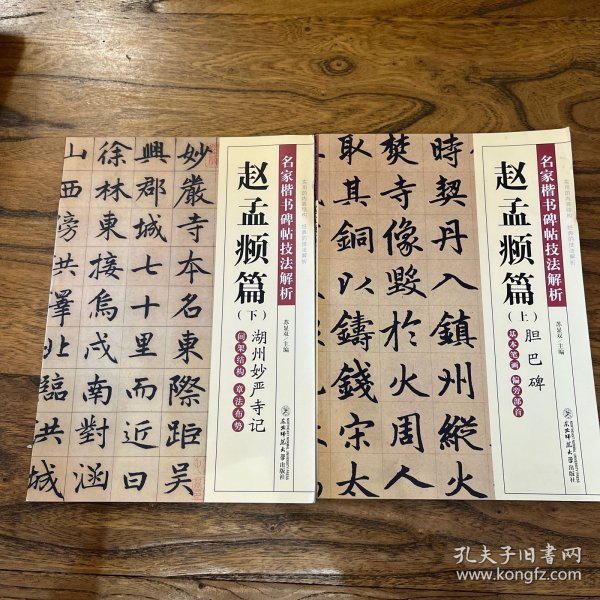 妙嚴寺本名東際距吳
興郡城七十里而近曰
徐林東接烏戍南對涵
山西傍洪澤北臨洪城
名家楷书碑帖技法解析
赵孟頫篇
(下)
苏显双·主编
湖州妙严寺记
间架结构 章法布势
东北师范大学出版社
時契丹入鎮州縱火
焚寺像毀於火周人
取其銅以鑄錢宋太
名家楷书碑帖技法解析
实用的内容结构 经典的技法解析
赵孟頫篇
(上)
苏显双·主编
胆巴碑
基本笔画 偏旁部首
东北师范大学出版社
孔夫子旧书网
www.kongfz.com